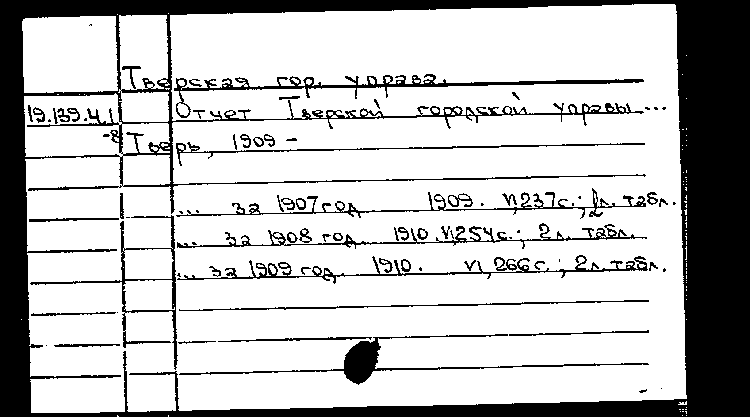 Тверская гор. управа.
19.139.4.1 Отчет Тверской городской управы ...
-8 Тверь, 1909 –
... за 1907 год 1909. VI, 237 с.; 2 л. табл.
... за 1908 год. 1910. VI, 254 с.; 2 л. табл.
... за 1909 год. 1910. VI, 266 с.; 2 л. табл.